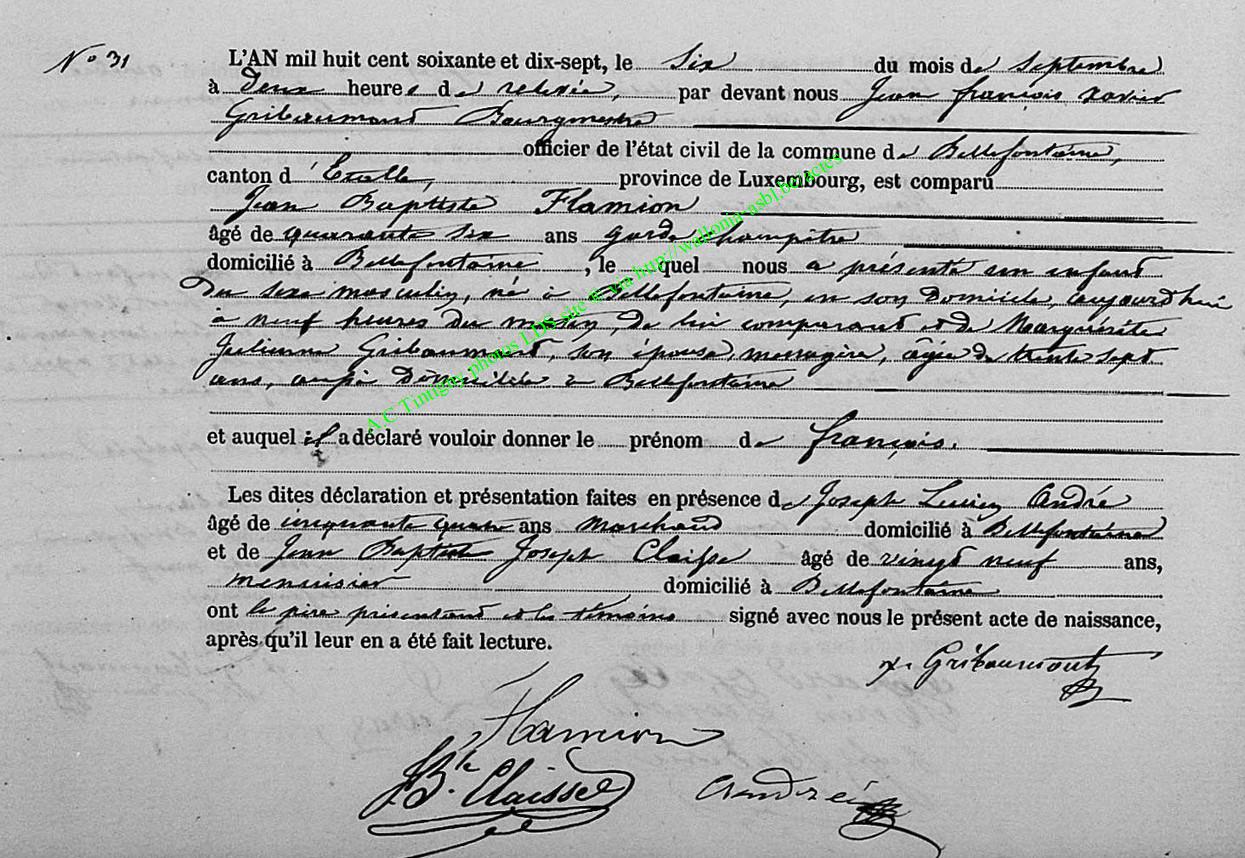 N° 31
L'AN mil huit cent soixante et dix-sept, le six du mois de septembre
à deux heures de relevée, par devant nous Jean François Xavier
Gribaumont Bourgmestre
officier de l'état civil de la commune de Bellefontaine,
canton d'Etalle, province de Luxembourg, est comparu
Jean Baptiste Flamion
âgé de quarante six ans garde champêtre
domicilié à Bellefontaine, le quel nous a présenté un enfant
du sexe masculin, né à Bellefontaine, en son domicile, aujourd'hui
à neuf heures du matin, de lui comparant et de Marguérite
Julienne Gribaumont, son épouse, ménagère, âgée de trente sept
ans, aussi domiciliée à Bellefontaine
et auquel il a déclaré vouloir donner le prénom de François.
Les dites déclaration et présentation faites en présence de Joseph Lucien André
âgé de cinquante quatre ans marchand domicilié à Bellefontaine
et de Jean Baptiste Joseph Claisse âgé de vingt neuf ans,
menuisier domicilié à Bellefontaine
ont le père présentant et les témoins signé avec nous le présent acte de naissance,
après qu'il leur en a été fait lecture.
x. Gribaumont
Flamion
JBte Claisse
André
A.C Tintigny photos LDS site © via http://wallonia-asbl.be actes